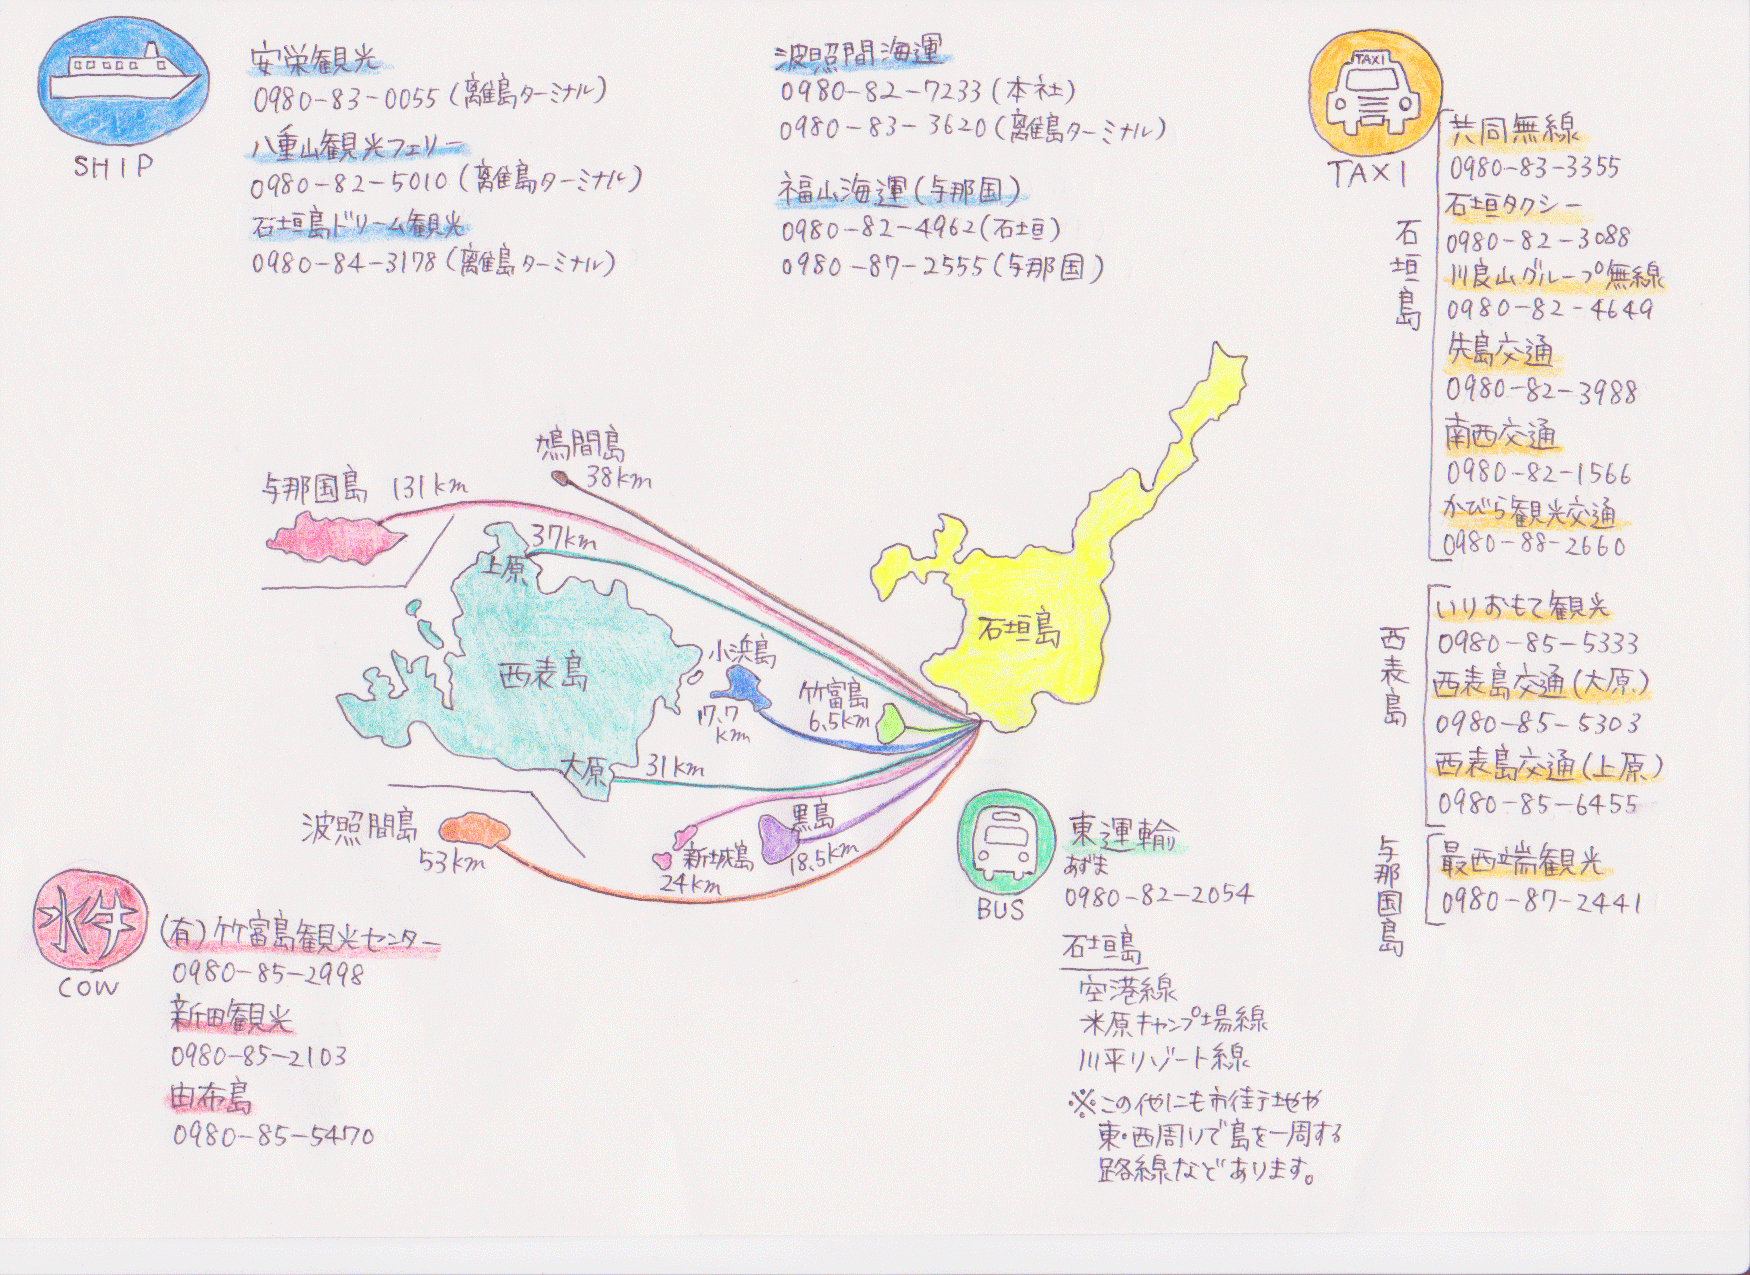 SHIP
安栄観光
0980-83-0055(離島ターミナル)
八重山観光フェリー
0980-82-5010(離島ターミナル)
石垣島ドリーム観光
0980-84-3178(離島ターミナル)
波照間海運
0980-82-7233(本社)
0980-83-3620(離島ターミナル)
福山海運(与那国)
0980-82-4962(石垣)
0980-87-2555(与那国)
TAXI
TAXI
石垣島
共同無線
0980-83-3355
石垣タクシー
0980-82-3088
川良山グループ無線
0980-82-4649
先島交通
0980-82-3988
南西交通
0980-82-1566
かびら観光交通
0980-88-2660
西表島
いりおもて観光
0980-85-5333
西表島交通(大原)
0980-85-5303
西表島交通(上原)
0980-85-6455
与那国島
最西端観光
0980-87-2441
鳩間島
38km
与那国島 131km
37km
上原
西表島
石垣島
小浜島
17.7
km
竹富島
6.5km
大原
31km
波照間島
53km
新城島
24km
黒島
18.5km
BUS
東運輸
あずま
0980-82-2054
石垣島
空港線
米原キャンプ場線
川平リゾート線
※この他にも市街地や
東・西周りで島を一周する
路線などあります。
水牛
COW
(有)竹富島観光センター
0980-85-2998
新田観光
0980-85-2103
由布島
0980-85-5470